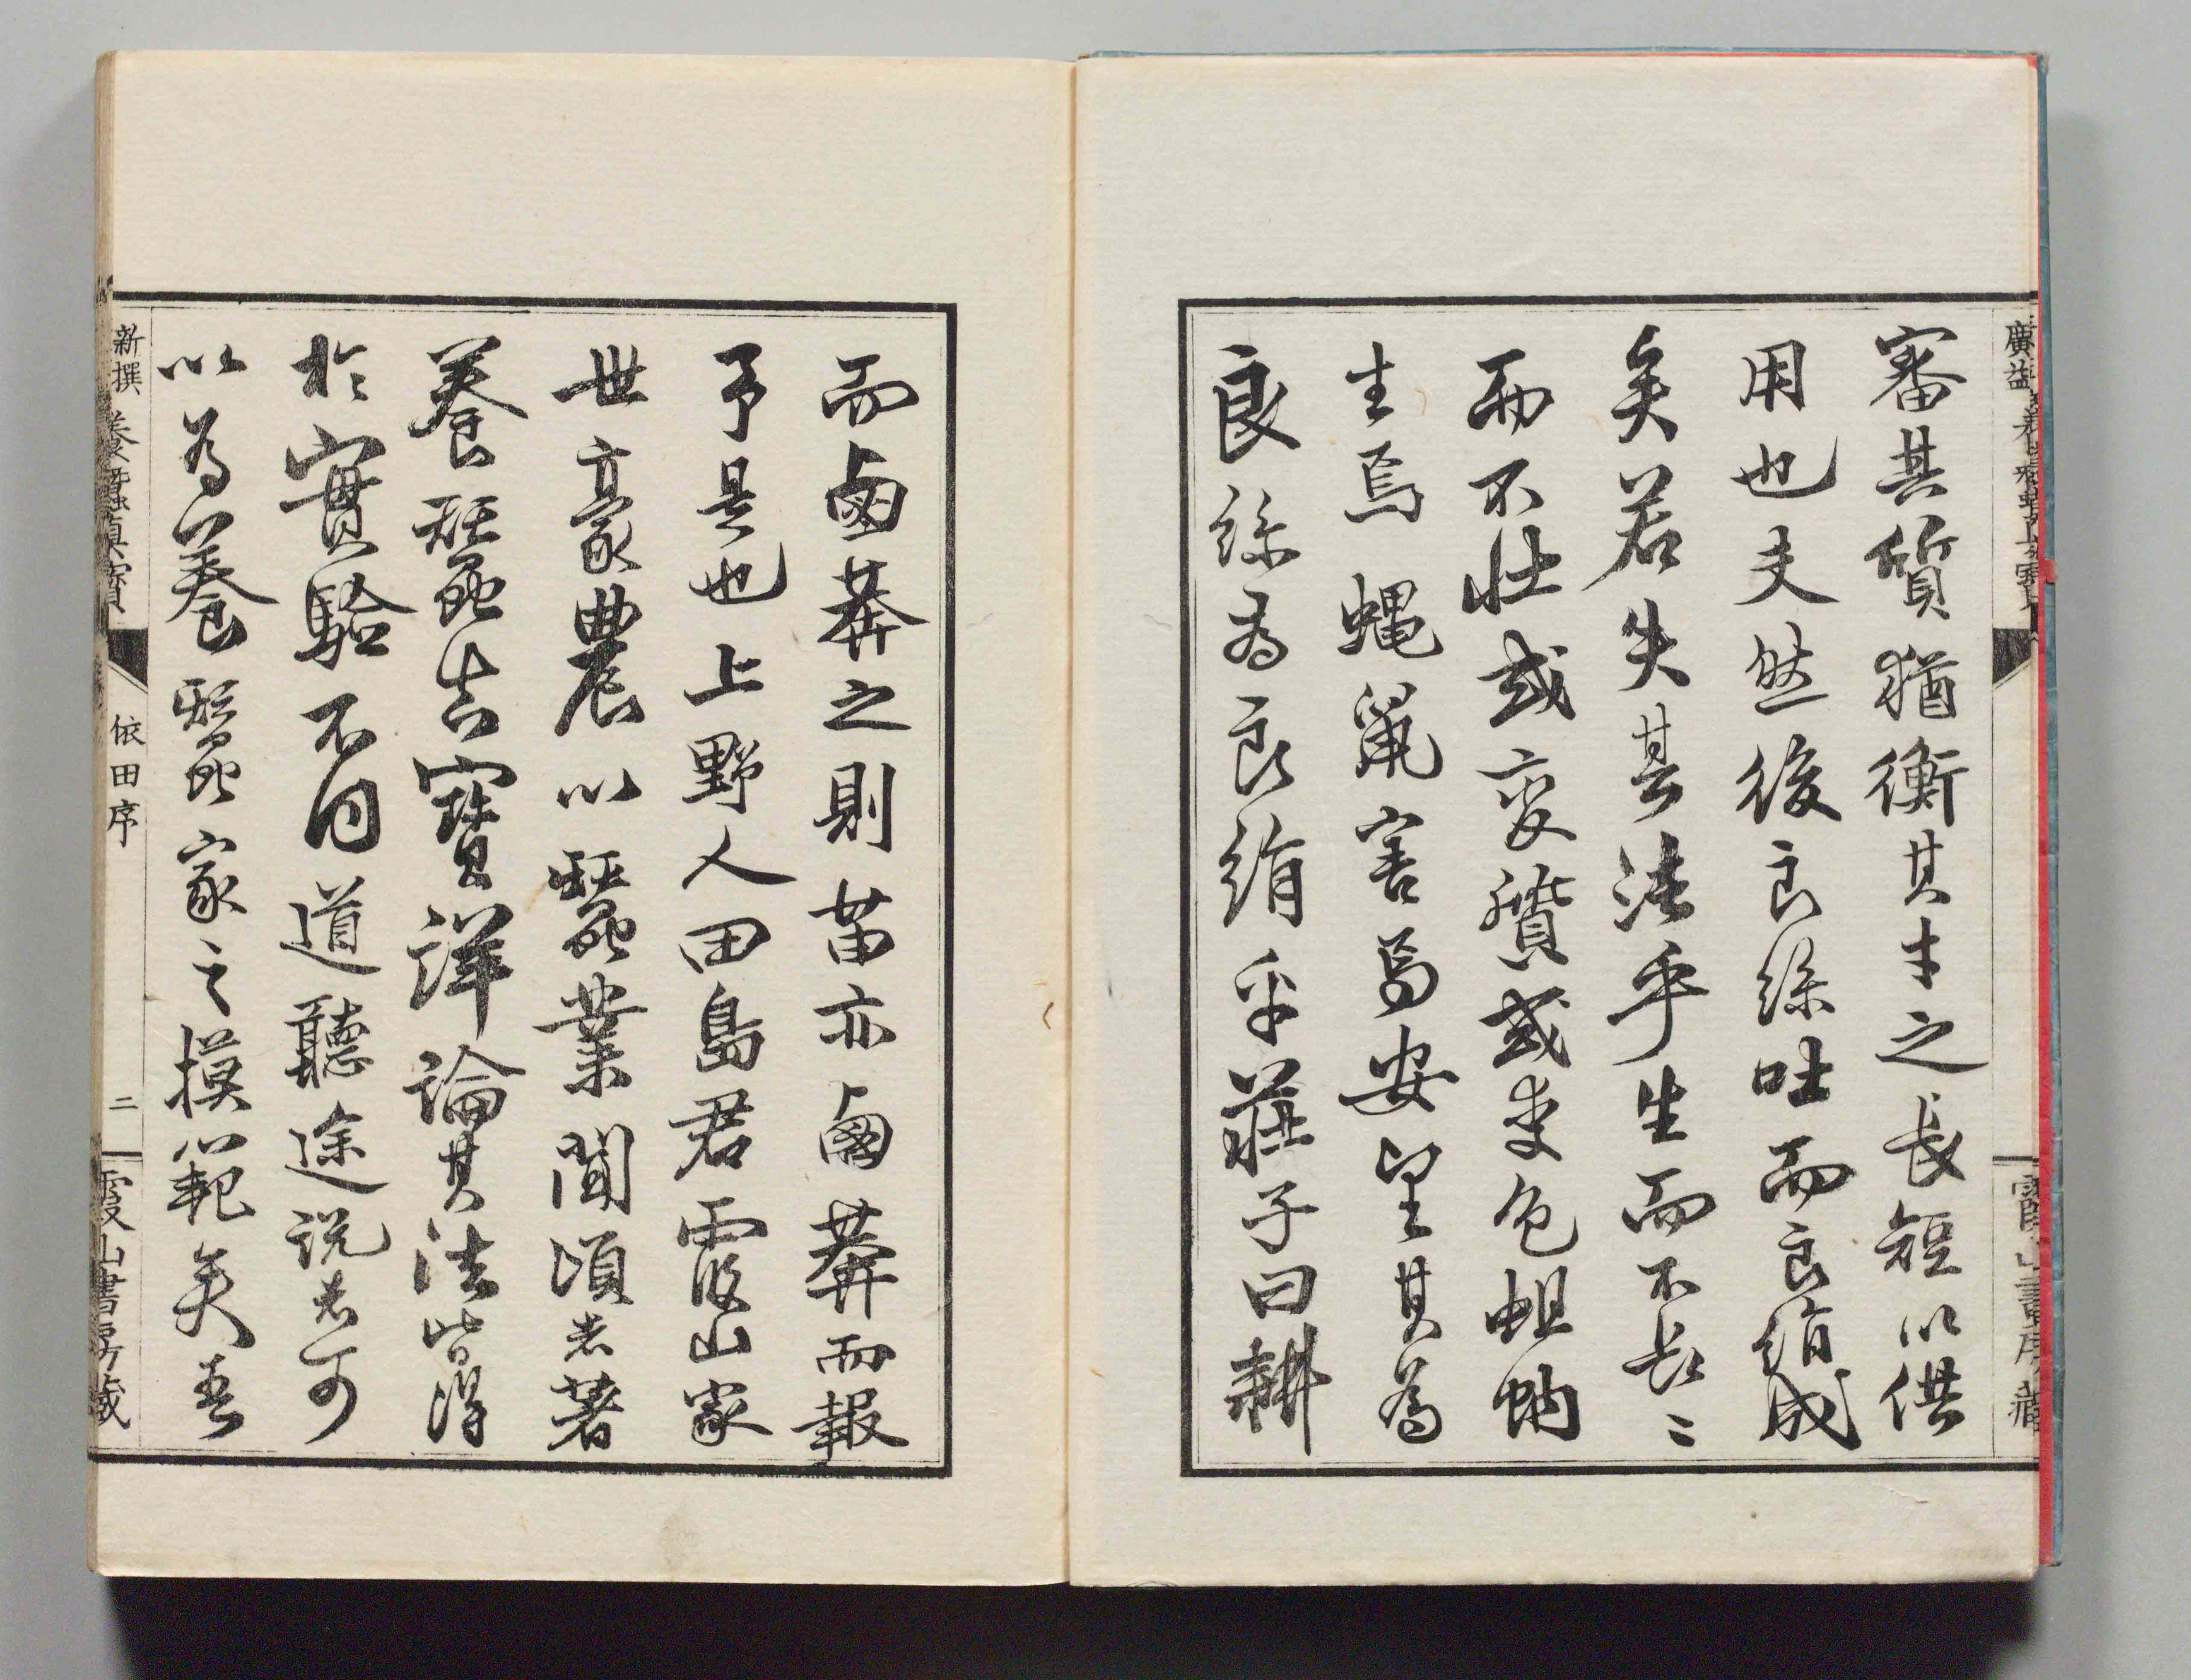 審其質猶衡其才之長短以供
用也夫然後良絲吐而良絹成
矣若失其法乎生而不長々
而不壮或変質或変色蛆蚋
生焉蝿鼠害焉安望其為
良絲為良絹乎荘子曰耕
而鹵莽之則苗亦鹵莽而報
予是也上野人田島君霞山家
世豪農以蠶業聞頃者著
養蠶吉寶詳論其法皆得
於實驗不同道聽途説者可
以為養蠶家之摸範矣吾
新撰 養蠶眞寶
依田序
二
霞山書房藏